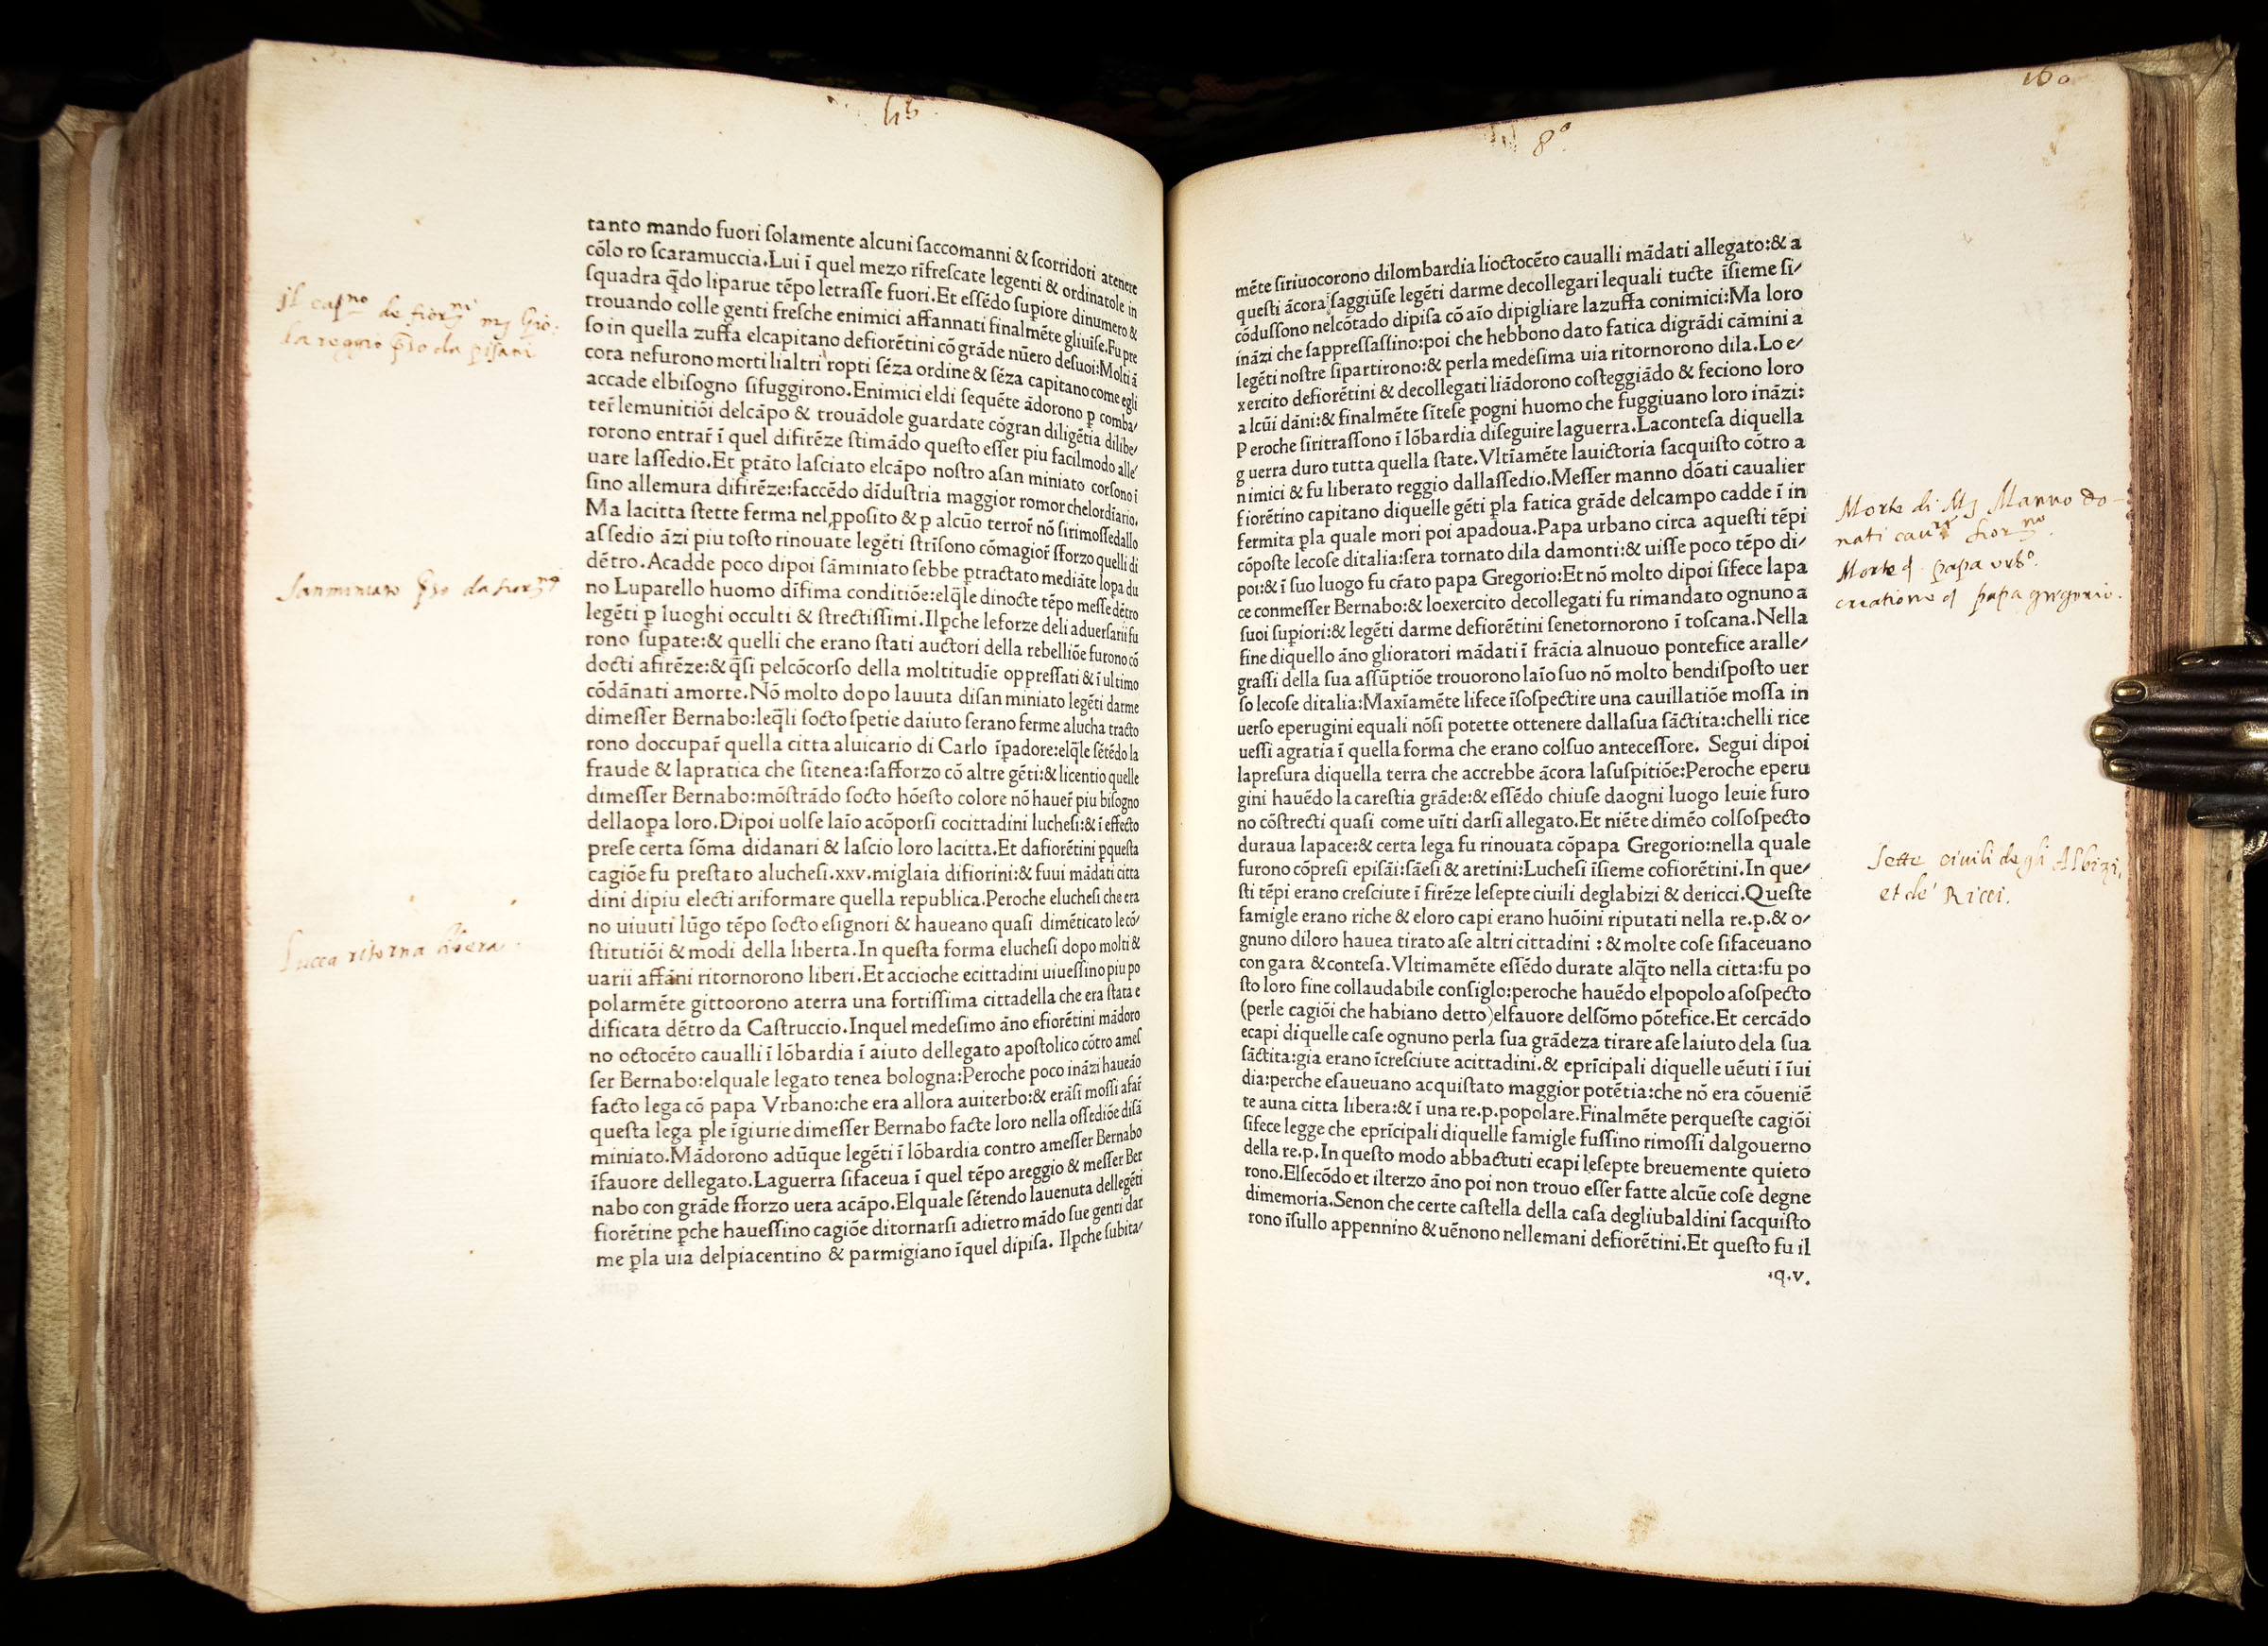 tanto mando fuori ſolamente alcuni ſaccomanni & ſcorridori atenere
cõlo ro ſcaramuccia.Lui ĩ quel mezo rĩfreſcate legenti & ordinatole in
ſquadra q̃do liparue tẽpo letraſſe fuori.Et eſſẽdo ſupiore dinumero &
trouando colle genti freſche enimici affannati finalmẽte gliuiſe.Fu pre
ſo in quella zuffa elcapitano defiorẽtini cõ grãde nũero deſuoi:Molti ã
cora nefurono morti lialtri ropti ſẽza ordine & ſẽza capitano come egli
accade elbiſogno ſifuggirono.Enimici eldi ſequẽte ãdorono ꝑ comba/
ter̃ lemunitiõi delcãpo & trouãdole guardate cõgran diligẽtia dilibe/
rorono entrar̃ ĩ quel difirẽze ſtimãdo queſto eſſer piu facilmodo alle/
uare laſſedio.Et ꝑtãto laſciato elcãpo noſtro aſan miniato corſono ĩ
ſino allemura difirẽze:faccẽdo dĩduſtria maggior romor chelordĩario.
Ma lacitta ſtette ferma nel ꝓpoſito & ꝑ alcũo terror̃ nõ ſirimoſſe dallo
aſſedio ãzi piu toſto rinouate legẽti ſtrĩſono cõmagior̃ sforzo quelli di
dẽtro.Acadde poco dipoi ſãminiato ſebbe ꝑtractato mediãte lopa du
no Luparello huomo difima conditiõe:elq̃le dinocte tẽpo meſſe dẽtro
legẽti ꝑ luoghi occulti & ſtrectiſſimi.Ilꝑche leforze deli aduerſarii fu
rono ſupate:& quelli che erano ſtati auctori della rebelliõe furono cõ
docti afirẽze:& q̃ſi pelcõcorſo della moltitudĩe oppreſſati & ĩ ultimo
cõdãnati amorte.Nõ molto dopo lauuta diſan miniato legẽti darme
dimeſſer Bernabo:leq̃li ſocto ſpetie daiuto ſerano ferme alucha tracto
rono doccupar̃ quella citta aluicario di Carlo ĩpadore:elq̃le ſẽtẽdo la
fraude & lapratica che ſitenea:ſafforzo cõ altre gẽti:& licentio quelle
dimeſſer Bernabo:mõſtrãdo ſocto hõeſto colore nõ hauer̃ piu biſogno
dellaopa loro.Dipoi uolſe laĩo acõporſi cocittadini lucheſi:& ĩ effecto
preſe certa ſõma didanari & laſcio loro lacitta.Et dafiorẽtini ꝑqueſta
cagiõe fu preſtato alucheſi.xxv.miglaia difiorini:& fuui mãdati citta
dini dipiu electi ariformare quella republica.Peroche elucheſi che era
no uiuuti lũgo tẽpo ſocto eſignori & haueano quaſi dimẽticato le cõ/
ſtitutiõi & modi della liberta.In queſta forma elucheſi dopo molti &
uarii affãni ritornorono liberi.Et accioche ecittadini uiueſſino piu po
polarmẽte gittoorono aterra una fortiſſima cittadella che era ſtata e
dificata dẽtro da Caſtruccio.Inquel medeſimo ãno efiorẽtini mãdoro
no octocẽto caualli ĩ lõbardia ĩ aiuto dellegato apoſtolico cõtro ameſ
ſer Bernabo:elquale legato tenea bologna:Peroche poco inãzi haueão
facto lega cõ papa Vrbano:che era allora auiterbo:& erãſi moſſi afar̃
queſta lega ꝑle ĩgiurie dimeſſer Bernabo facte loro nella oſſediõe diſã
miniato.Mãdorono adũque legẽti ĩ lõbardia contro ameſſer Bernabo
ĩfauore dellegato.Laguerra ſifaceua ĩ quel tẽpo areggio & meſſer Ber
nabo con grãde sforzo uera acãpo.Elquale ſẽtendo lauenuta dellegẽti
fiorẽtine ꝑche haueſſino cagiõe ditornarſi adietro mãdo ſue genti dar
me ꝑla uia delpiacentino & parmigiano ĩquel dipiſa. Ilꝑche ſubita/
ſanminiato p̃so da fior.ni
Lucca ritorna libera.
160
8º
mẽte ſiriuocorono dilombardia lioctocẽto caualli mãdati allegato:& a
queſti ãcora ſaggiũſe legẽti darme decollegari lequali tucte ĩſieme ſi/
cõduſſono nelcõtado dipiſa cõ aĩo dipigliare lazuffa conimici:Ma loro
inãzi che ſappreſſaſſino:poi che hebbono dato fatica digrãdi cãmini a
legẽti noſtre ſipartirono:& perla medeſima uia ritornorono dila.Lo e/
xercito defiorẽtini & decollegati liãdorono coſteggiãdo & feciono loro
a lcũi dãni:& finalmẽte ſiteſe ꝑogni huomo che fuggiuano loro inãzi:
P eroche ſiritraſſono ĩ lõbardia diſeguire laguerra.Laconteſa diquella
g uerra duro tutta quella ſtate.Vltĩamẽte lauictoria ſacquiſto cõtro a
n imici & fu liberato reggio dallaſſedio.Meſſer manno dõati caualier
f iorẽtino capitano diquelle gẽti ꝑla fatica grãde delcampo cadde ĩ in
fermita ꝑla quale mori poi apadoua.Papa urbano circa aqueſti tẽpi
cõpoſte lecoſe ditalia:ſera tornato dila damonti:& uiſſe poco tẽpo di/
poi:& ĩ ſuo luogo fu cr̃ato papa Gregorio:Et nõ molto dipoi ſifece lapa
ce conmeſſer Bernabo:& loexercito decollegati fu rimandato ognuno a
ſuoi ſupiori:& legẽti darme defiorẽtini ſenetornorono ĩ toſcana.Nella
fine diquello ãno glioratori mãdati ĩ frãcia alnuouo pontefice aralle/
graſſi della ſua aſſũptiõe trouorono laĩo ſuo nõ molto bendiſpoſto uer
ſo lecoſe ditalia:Maxĩamẽte lifece ĩſoſpectire una cauillatiõe moſſa in
uerſo eperugini equali nõſi potette ottenere dallaſua ſãctita:chelli rice
ueſſi agratia ĩ quella forma che erano colſuo anteceſſore. Segui dipoi
lapreſura diquella terra che accrebbe ãcora laſuſpitiõe:Peroche eperu
gini hauẽdo la careſtia grãde:& eſſẽdo chiuſe daogni luogo leuie furo
no cõſtrecti quaſi come uĩti darſi allegato.Et niẽte dimẽo colſoſpecto
duraua lapace:& certa lega fu rinouata cõpapa Gregorio:nella quale
furono cõpreſi epiſãi:ſãeſi & aretini:Lucheſi ĩſieme cofiorẽtini.In que/
ſti tẽpi erano creſciute ĩ firẽze leſepte ciuili deglabizi & dericci.Queſte
famigle erano riche & eloro capi erano huõini riputati nella re.p.& o/
gnuno diloro hauea tirato aſe altri cittadini : & molte coſe ſifaceuano
con gara & conteſa.Vltimamẽte eſſẽdo durate alq̃to nella citta:fu po
ſto loro fine collaudabile conſiglo:peroche hauẽdo elpopolo aſoſpecto
(perle cagiõi che habiano detto)elfauore delſõmo põtefice.Et cercãdo
ecapi diquelle caſe ognuno perla ſua grãdeza tirare aſe laiuto dela ſua
ſãctita:gia erano ĩcreſciute acittadini.& eprĩcipali diquelle uẽuti ĩ ĩui
dia:perche eſaueuano acquiſtato maggior potẽtia:che nõ era cõueniẽ
te auna citta libera:& ĩ una re.p.popolare.Finalmẽte perqueſte cagiõi
ſifece legge che eprĩcipali diquelle famigle fuſſino rimoſſi dalgouerno
della re.p.In queſto modo abbactuti ecapi leſepte breuemente quieto
rono.Elſecõdo et ilterzo ãno poi non trouo eſſer fatte alcũe coſe degne
dimemoria.Senon che certe caſtella della caſa degliubaldini ſacquiſto
rono ĩſullo appennino & uẽnono nellemani defiorẽtini.Et queſto fu il
q.v.
Morte di Mʒ Manno Do-
nati cau.re fior.no
Morte d papa urb.º
creatione d papa gregorio.
Sette ciuili degli Albizi,
et de' Ricci.